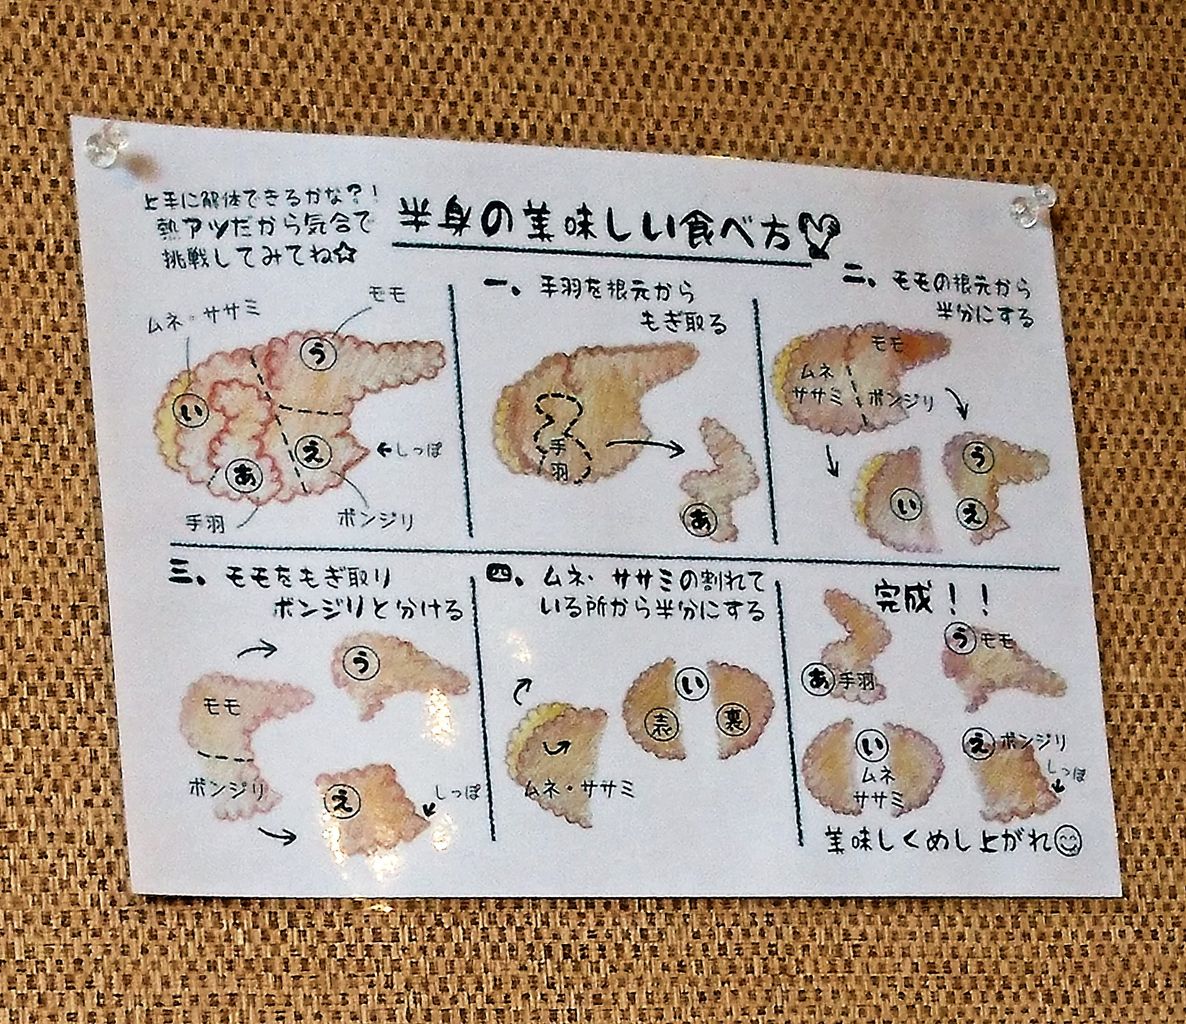 上手に解体できるかな?!
熱アツだから気合で
挑戦してみてね☆
半身の美味しい食べ方
ムネ・ササミ
モモ
う
い
え
あ
←しっぽ
手羽
ボンジリ
一、手羽を根元から
もぎ取る
手
羽
あ
二、モモの根元から
半分にする
モモ
ムネ
ササミ
ボンジリ
う
い
え
三、モモをもぎ取り
ボンジリと分ける
う
モモ
ボンジリ
え
しっぽ
四、ムネ・ササミの割れて
いる所から半分にする
い
表
裏
ムネ・ササミ
完成!!
う モモ
あ 手羽
い
ムネ
ササミ
え ボンジリ
しっぽ
美味しくめし上がれ